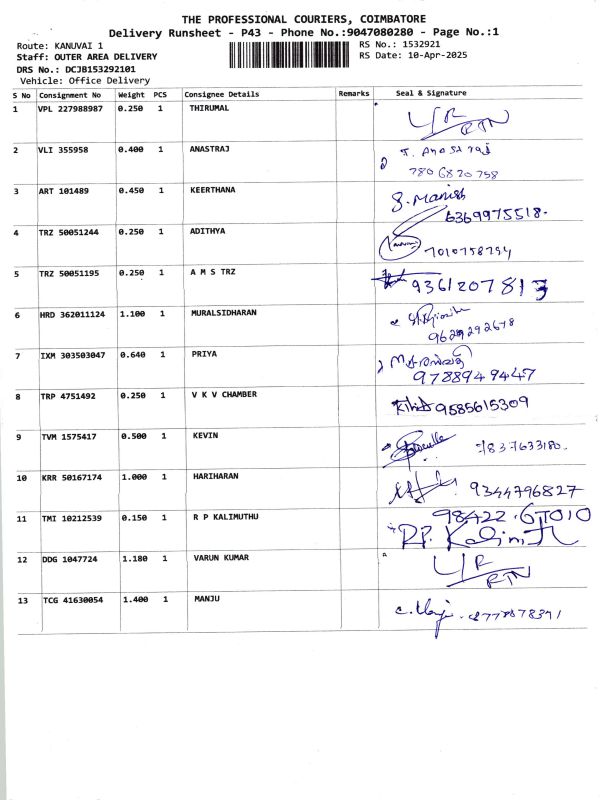 THE PROFESSIONAL COURIERS, COIMBATORE
Delivery Runsheet - P43 - Phone No.:9047080280 - Page No.:1
Route: KANUVAI 1
RS No.: 1532921
Staff: OUTER AREA DELIVERY
RS Date: 10-Apr-2025
DRS No.: DCJB153292101
Vehicle: Office Delivery
S No Consignment No Weight PCS Consignee Details Remarks Seal & Signature
1 VPL 227988987 0.250 1 THIRUMAL
RTN
2 VLI 355958 0.400 1 ANASTRAJ
780 6820 758
3 ART 101489 0.450 1 KEERTHANA
S. Manish
6369975518.
4 TRZ 50051244 0.250 1 ADITHYA
7010758794
5 TRZ 50051195 0.250 1 A M S TRZ
9361207813
6 HRD 362011124 1.100 1 MURALSIDHARAN
9629292678
7 IXM 303503047 0.640 1 PRIYA
9788949447
8 TRP 4751492 0.250 1 V K V CHAMBER
9585615309
9 TVM 1575417 0.500 1 KEVIN
7837633180.
10 KRR 50167174 1.000 1 HARIHARAN
9344796827
11 TMI 10212539 0.150 1 R P KALIMUTHU
98422.67010
12 DDG 1047724 1.180 1 VARUN KUMAR
RTN
13 TCG 41630054 1.400 1 MANJU